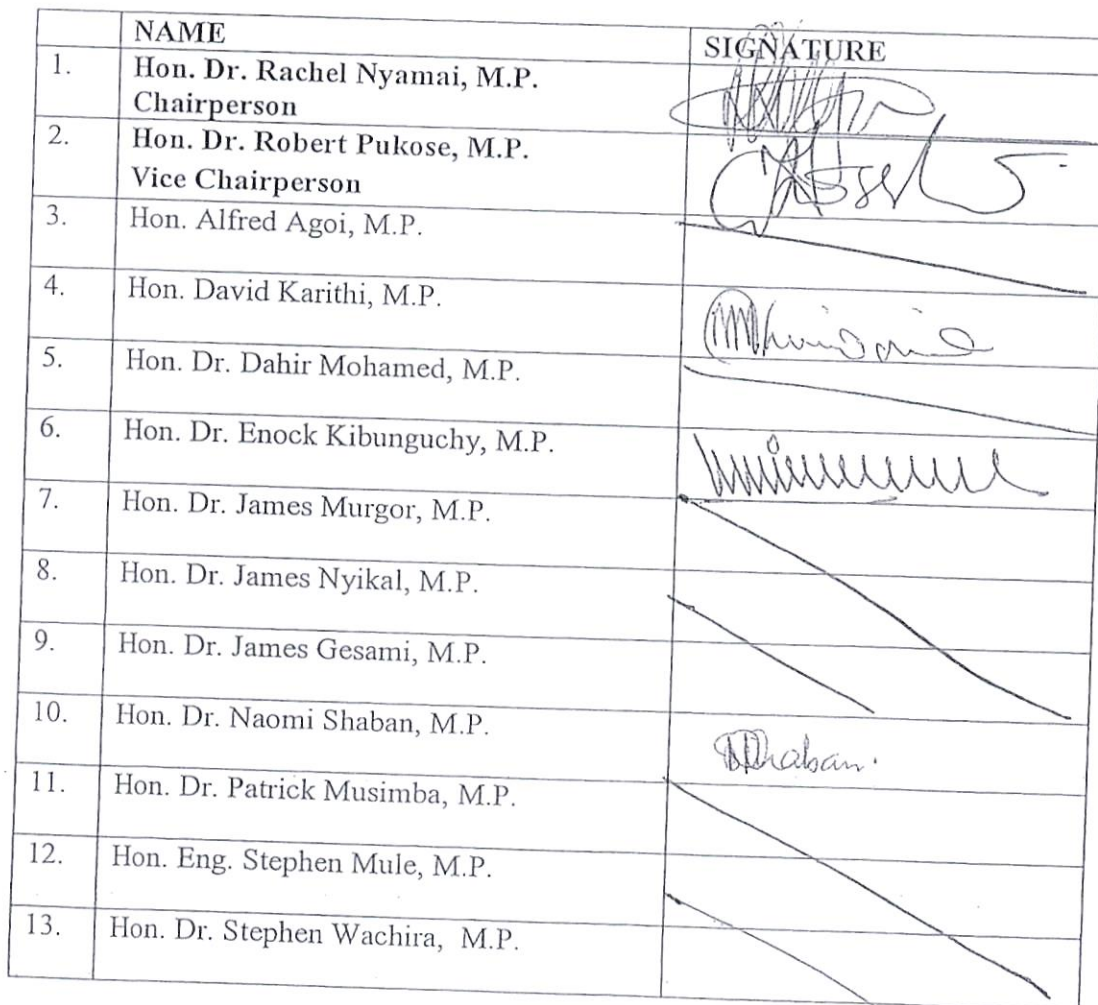 NAME SIGNATURE
1. Hon. Dr. Rachel Nyamai, M.P.
Chairperson
2. Hon. Dr. Robert Pukose, M.P.
Vice Chairperson
3. Hon. Alfred Agoi, M.P.
4. Hon. David Karithi, M.P.
5. Hon. Dr. Dahir Mohamed, M.P.
6. Hon. Dr. Enock Kibunguchy, M.P.
7. Hon. Dr. James Murgor, M.P.
8. Hon. Dr. James Nyikal, M.P.
9. Hon. Dr. James Gesami, M.P.
10. Hon. Dr. Naomi Shaban, M.P.
11. Hon. Dr. Patrick Musimba, M.P.
12. Hon. Eng. Stephen Mule, M.P.
13. Hon. Dr. Stephen Wachira, M.P.